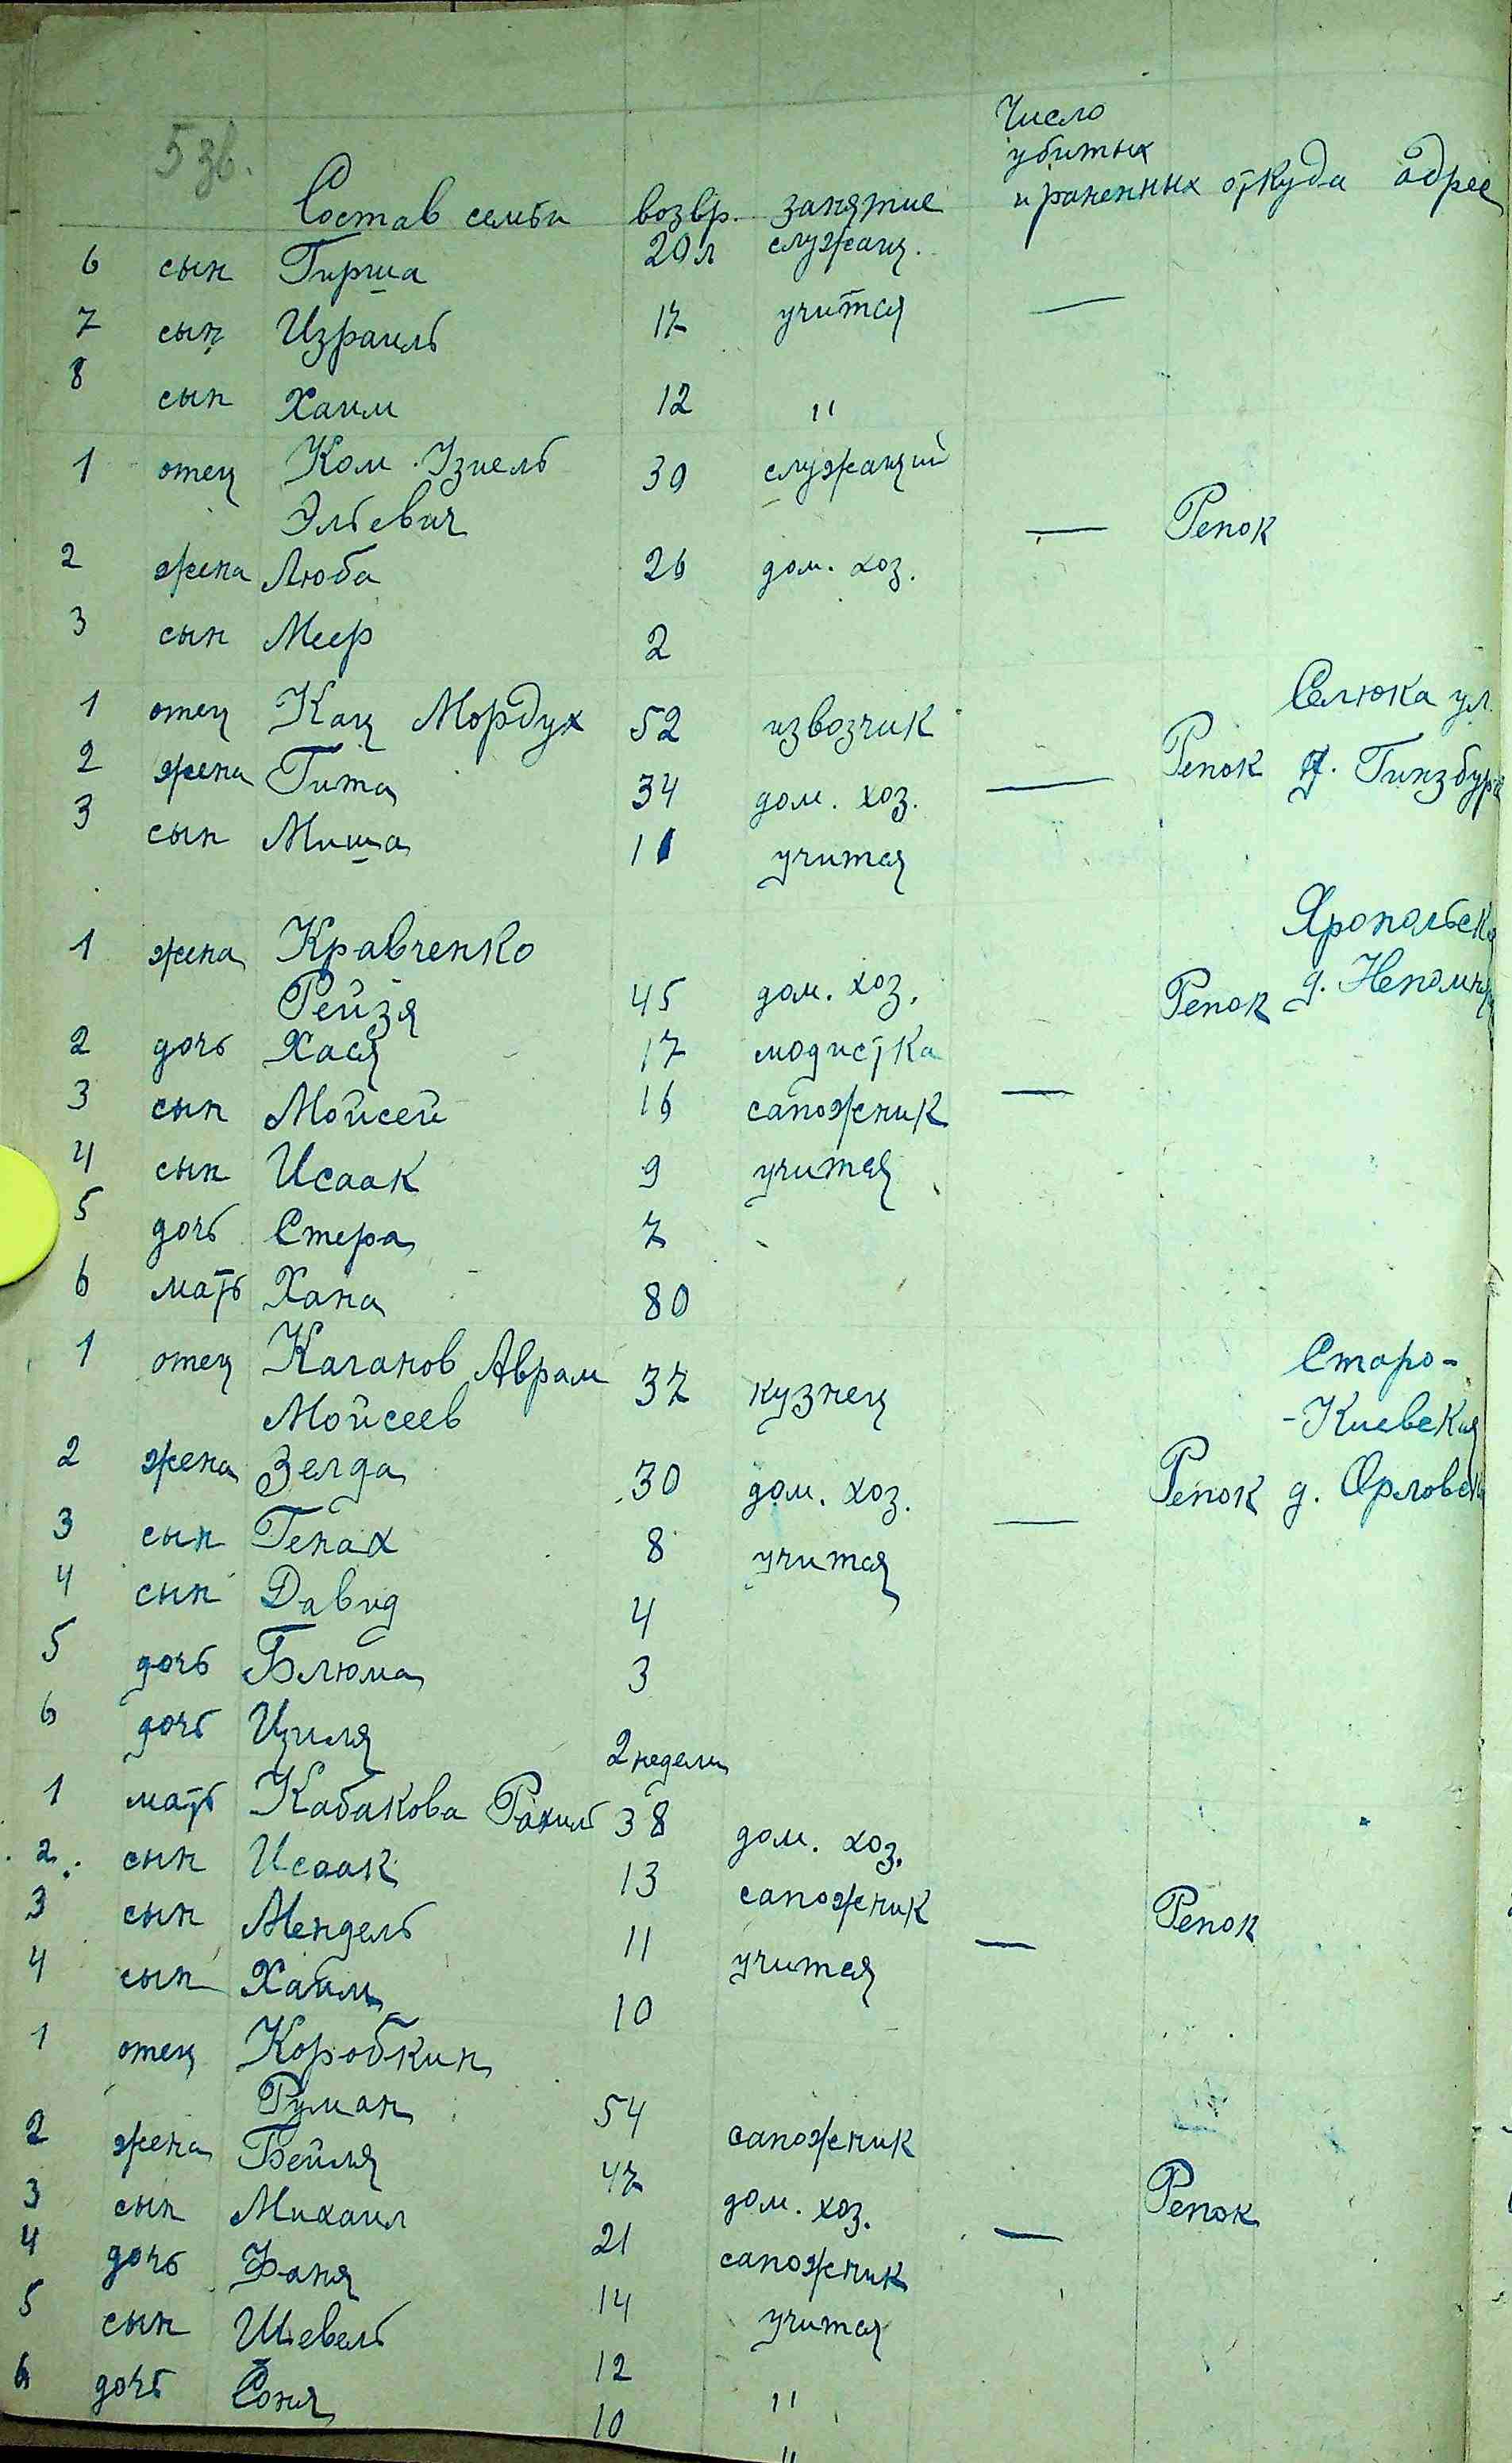 5 зв.
Число
убитых
Состав семьи возвр. занятие и раненных откуда адрес
6 сын Гирша 20 л служащ.
7 сын Израиль 17 учится —
8 сын Хаим 12 "
1 отец Ком Изиель 39 служащий
Эльевич — Репок
2 жена Люба 26 дом. хоз.
3 сын Меер 2
1 отец Кац Мордух 52 извозчик Селюка ул.
2 жена Гита 34 дом. хоз. — Репок д. Гинзбург
3 сын Миша 11 учится
1 жена Кравченко Яропольск
Рейзя 45 дом. хоз. Репок д.
2 дочь Хася 17 модистка
3 сын Мойсей 16 сапожник —
4 сын Исаак 9 учится
5 дочь Стера 7
6 мать Хана 80
1 отец Каганов Аврам 37 кузнец Старо-
Мойсеев -Киевская
2 жена Зелда 30 дом. хоз. Репок д. Орловск
3 сын Генах 8 учится —
4 сын Давид 4
5 дочь Блюма 3
6 дочь Циля 2 недели
1 мать Кабакова Рахиль 38 дом. хоз.
2 сын Исаак 13 сапожник Репок
3 сын Мендель 11 учится —
4 сын Хаим 10
1 отец Коробкин
Руман 54 сапожник
2 жена Бейля 47 дом. хоз. Репок
3 сын Михаил 21 сапожник —
4 дочь Фаня 14 учится
5 сын Шевель 12 "
6 дочь Соня 10 "